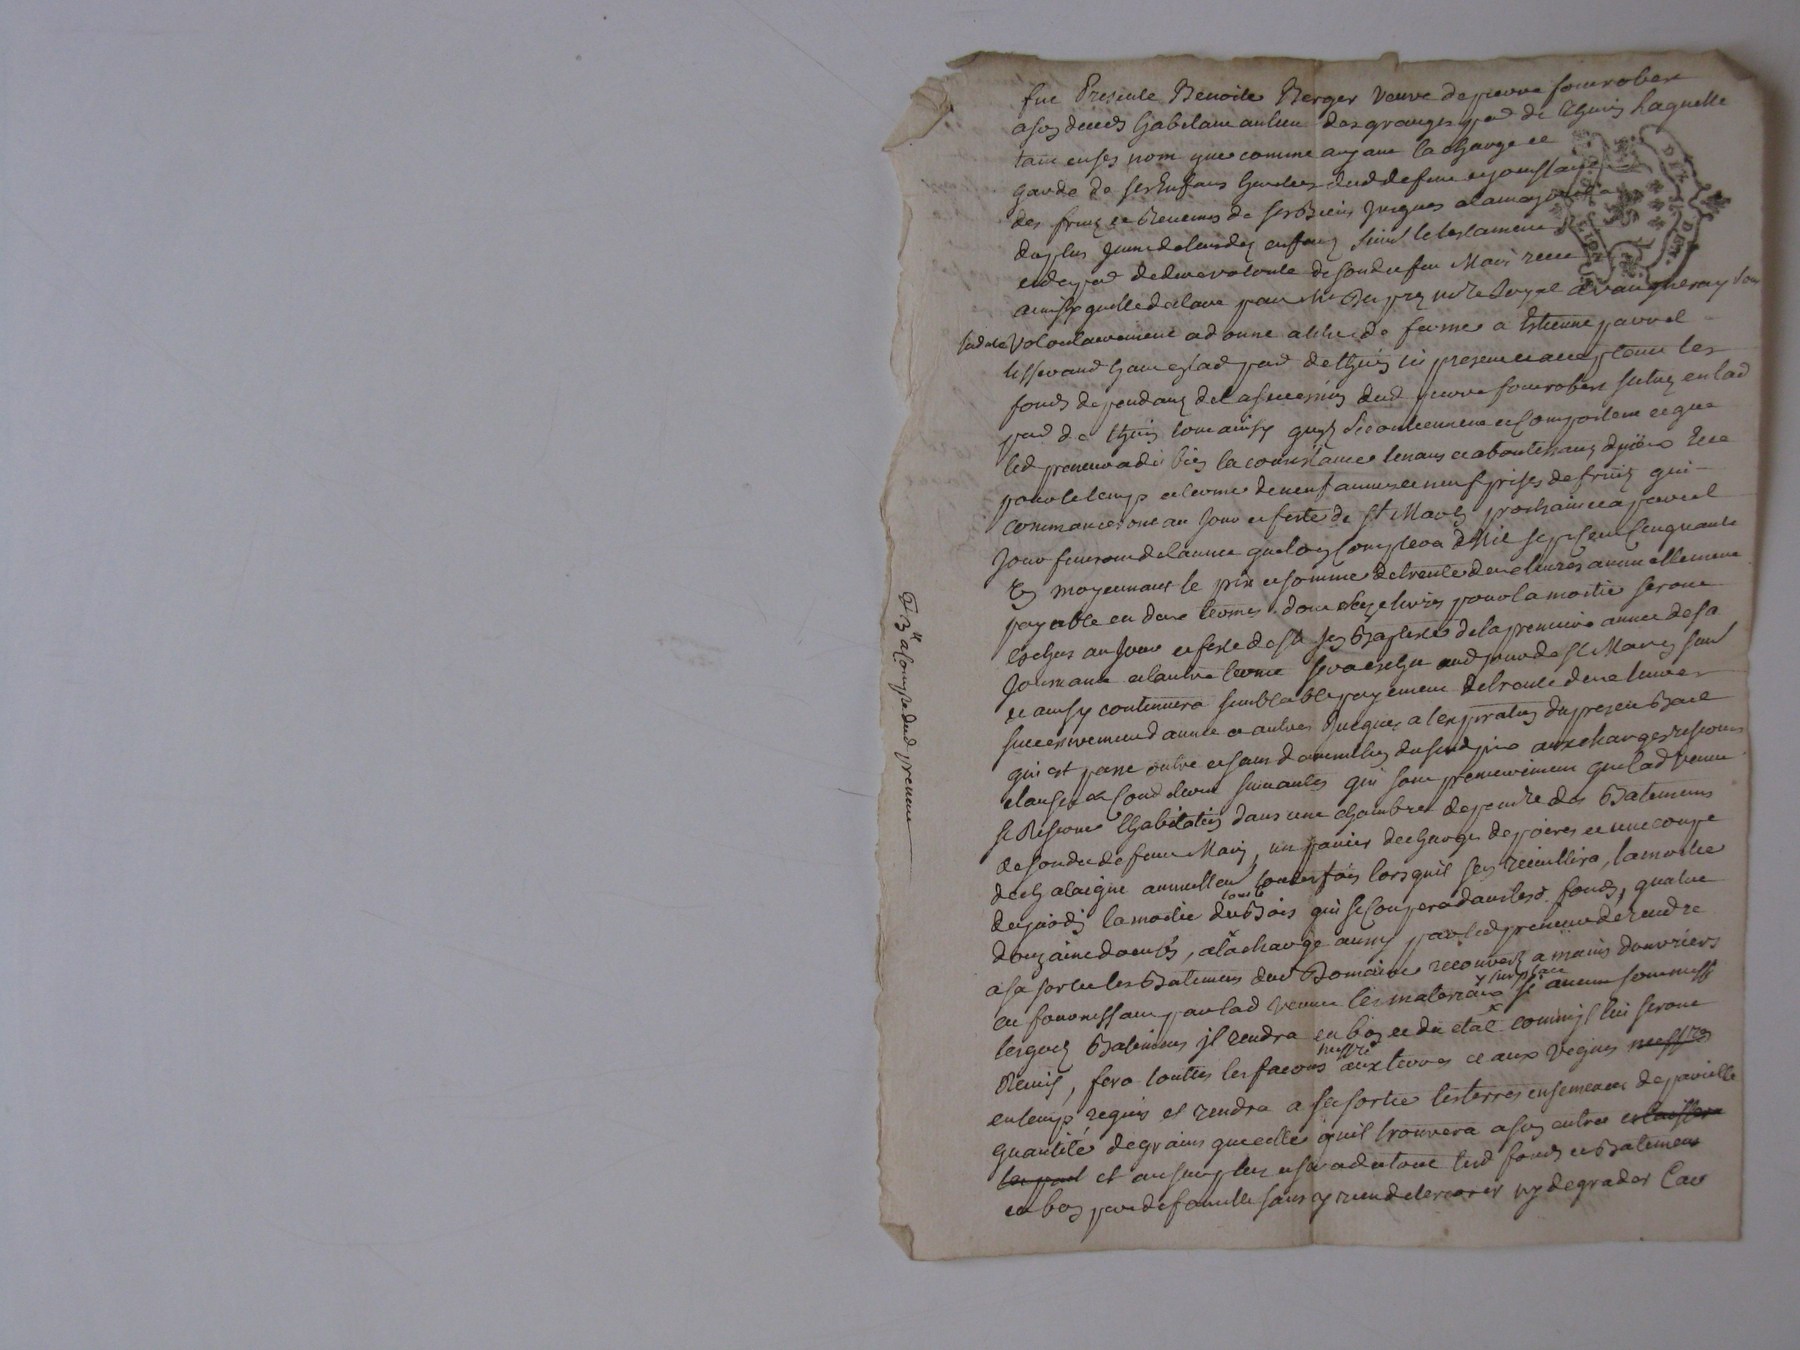 fut Presente Benoite Berger veuve de pierre fourobert
a son deces habitant au lieu des granges par de thurins laquelle
tant en ses nom que comme ayant la charge et
garde de ses Enfans heritiers dud defunt et jouissante
des fruitz et Revenus de ses Biens jusques a la majorité
du plus jeune de leursdz enfans suivt le testament
et de derniere volonte de sondit feu Mari receu
ainsy quelle declare par Me notre Royal a vaugneray
volontairement a donné a titre de ferme a Estienne
tisserand hant en lad par de thurins ici present et acceptant les
fonds dependans de la succession dud pierre fourobert situez en lad
par de thurins tout ainsy quilz se contiennent et comportent et que
led preneur a dit bien la consistance tenans et aboutissans
pour le temps et terme de neuf années et neuf prises de fruitz qui
commanceront au jour et feste de St Martin prochain et a pareil
jour finiront de lannée que lon comptera Mil sept cent cinquante
Et moyennant le prix et somme de trente deux livres annuellement
payable en deux termes dont seize livres pour la moitié seront
escheus au jour et feste de St Jean Baptiste de la premiere année de sa
jouissance et lautre terme sera escheu aud jour de St Martin suivt
et ainsy continuera semblable payement de trente deux livres
successivement d année a autres jusques a lexpiration du present Bail
qui est passé outre et sans diminution dususd prix aux charges reserves
clauses et conditions suivantes qui sont premierement que lad veuve
se Reserve lhabitation dans une chambre dependte des Batimens
de sondit defunt Mari, un panier de charge de poires et une coupe
de chataigne annuellemt touttefois lorsquil sen recuillira, la moitié
du jardin la moitié de tout Bois qui se coupera dans lesd. fonds, quatre
douzaine doeufs, a la charge aussy par led preneur de rendre
a sa sortie les Batimens dud Domaine recouverts a mains douvriers
en fournissant par lad veuve les materiaux sur place si aucuns
lesquelz Batimens il rendra en bon et du etat comme il lui seront
Remis, fera touttes les facons necessre aux terres et aux vignes
en temps requis et rendra a sa sortie les terres ensemencees de pareille
quantité de grains que celle quil trouvera a son entrée et laissera
et au surplus usera du tout lesd fonds et Batimens
en bon pere de famille sans y rien deteriorer ny degrader Car